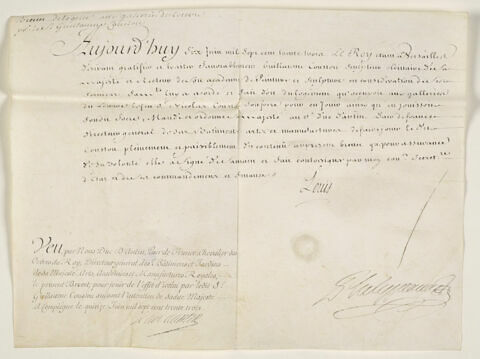 Brevet de logement aux galleries du Louvre
pour le Sr Guillaume Coustou
Aujourd'huy dix Juin mil sept cent trente trois Le Roy etant a Versailles
voulant gratifier et traiter favorablement Guillaume Coustou Sculpteur ordinaire de sa
Majesté et Recteur de son academie de Peinture et Sculpture en consideration de ses
Sa Majesté luy a accordé et fait don du logement qu'occupoit aux galleries
du Louvre Nicolas Coustou son frere pour en Jouir ainsy qu'en jouissoit
Son dit frere, Mande et ordonne Sa Majesté au Sr Duc d'Antin Pair de france
Directeur general de ses Batimens arts et manufactures de faire jouir le dit
Coustou pleinement et paisiblement du contenu au present brevet que pour assurance
de sa volonté elle a signé de sa main et fait contresigner par moy Secretre
d'Etat et de ses commandemens et finances
Louis
Veu par Nous Duc d'Antin, Pair de France, Chevalier des
Ordres du Roy, Directeur general des Bâtimens et Jardins
de sa Majesté, Arts, Académies et Manufactures Royales,
le present Brevet, pour jouir de l'effet d'iceluy par ledit Sr
Guillaume Coustou suivant l'intention de sadite Majesté
a Compiegne le quinze Juin mil sept cent trente trois